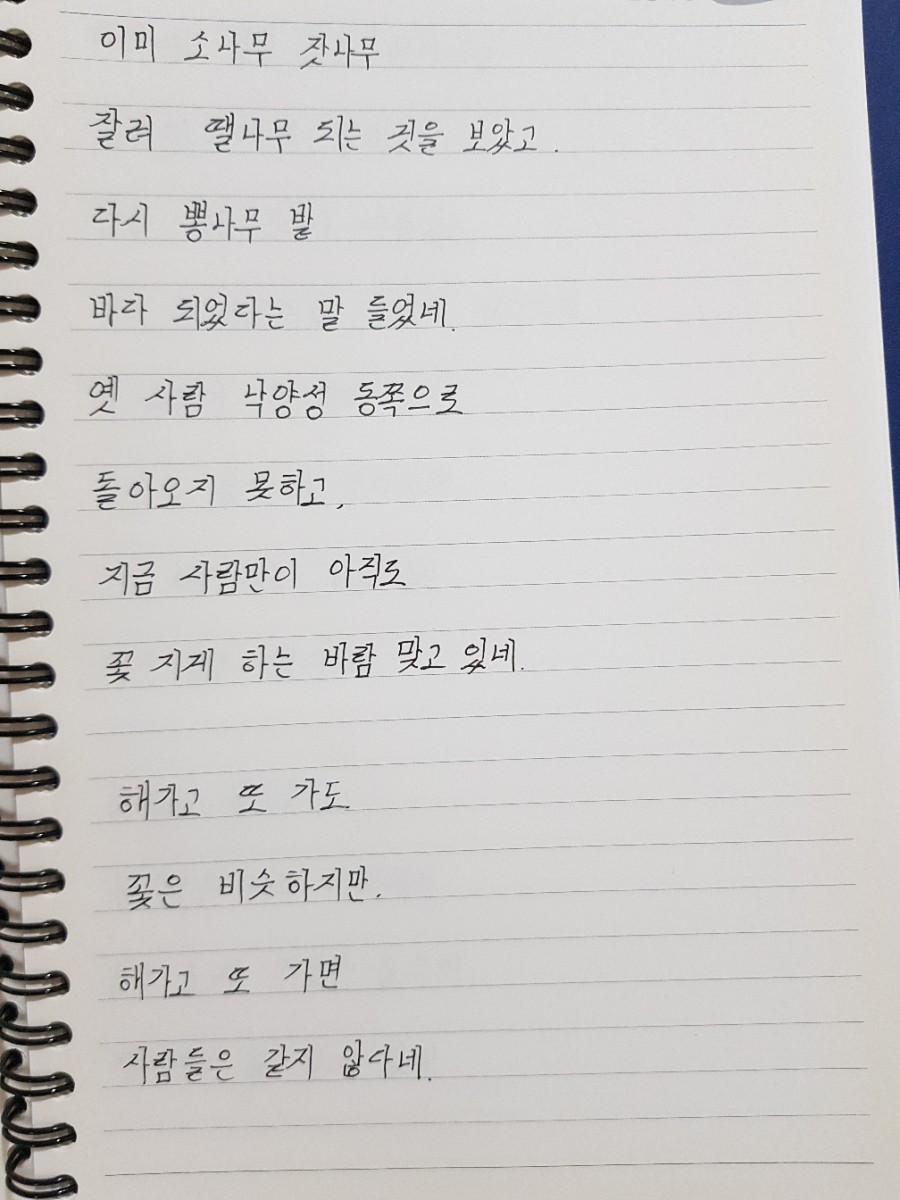 이미 소나무 잣나무
잘려 땔나무 되는 것을 보았고.
다시 뽕나무 밭
바다 되었다는 말 들었네.
옛 사람 낙양성 동쪽으로
돌아오지 못하고,
지금 사람만이 아직도
꽃 지게 하는 바람 맞고 있네.
해가고 또 가도
꽃은 비슷하지만,
해가고 또 가면
사람들은 같지 않다네.